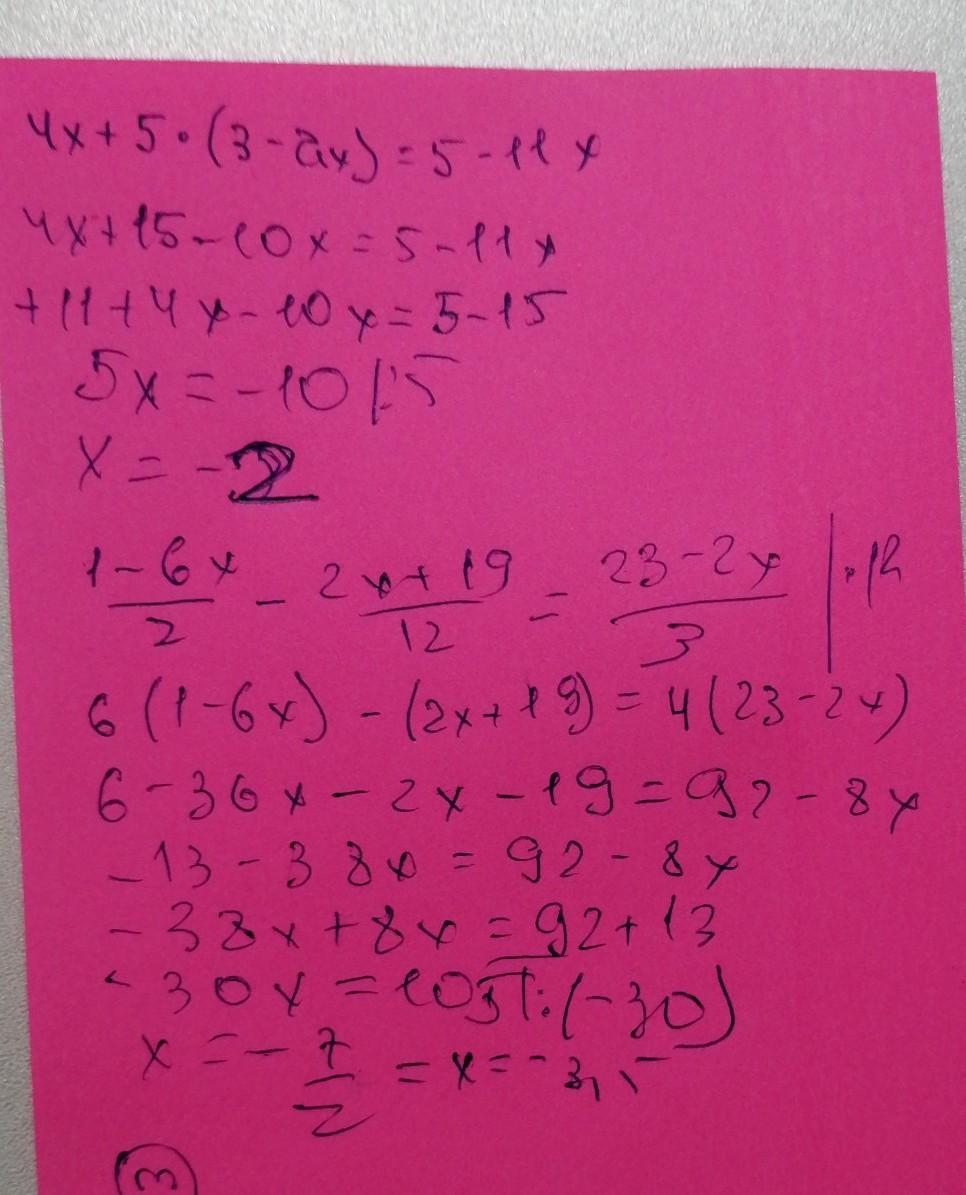 4x+5·(3-2x)=5-11x
4x+15-10x=5-11x
+11+4x-10x=5-15
5x=-10|:5
x=-2
1-6x/2 - 2x+19/12 = 23-2x/3 |·12
6(1-6x)-(2x+19)=4(23-2x)
6-36x-2x-19=92-8x
-13-38x=92-8x
-38x+8x=92+13
-30x=105|:(-30)
x=-7/2=x=-3,5
3